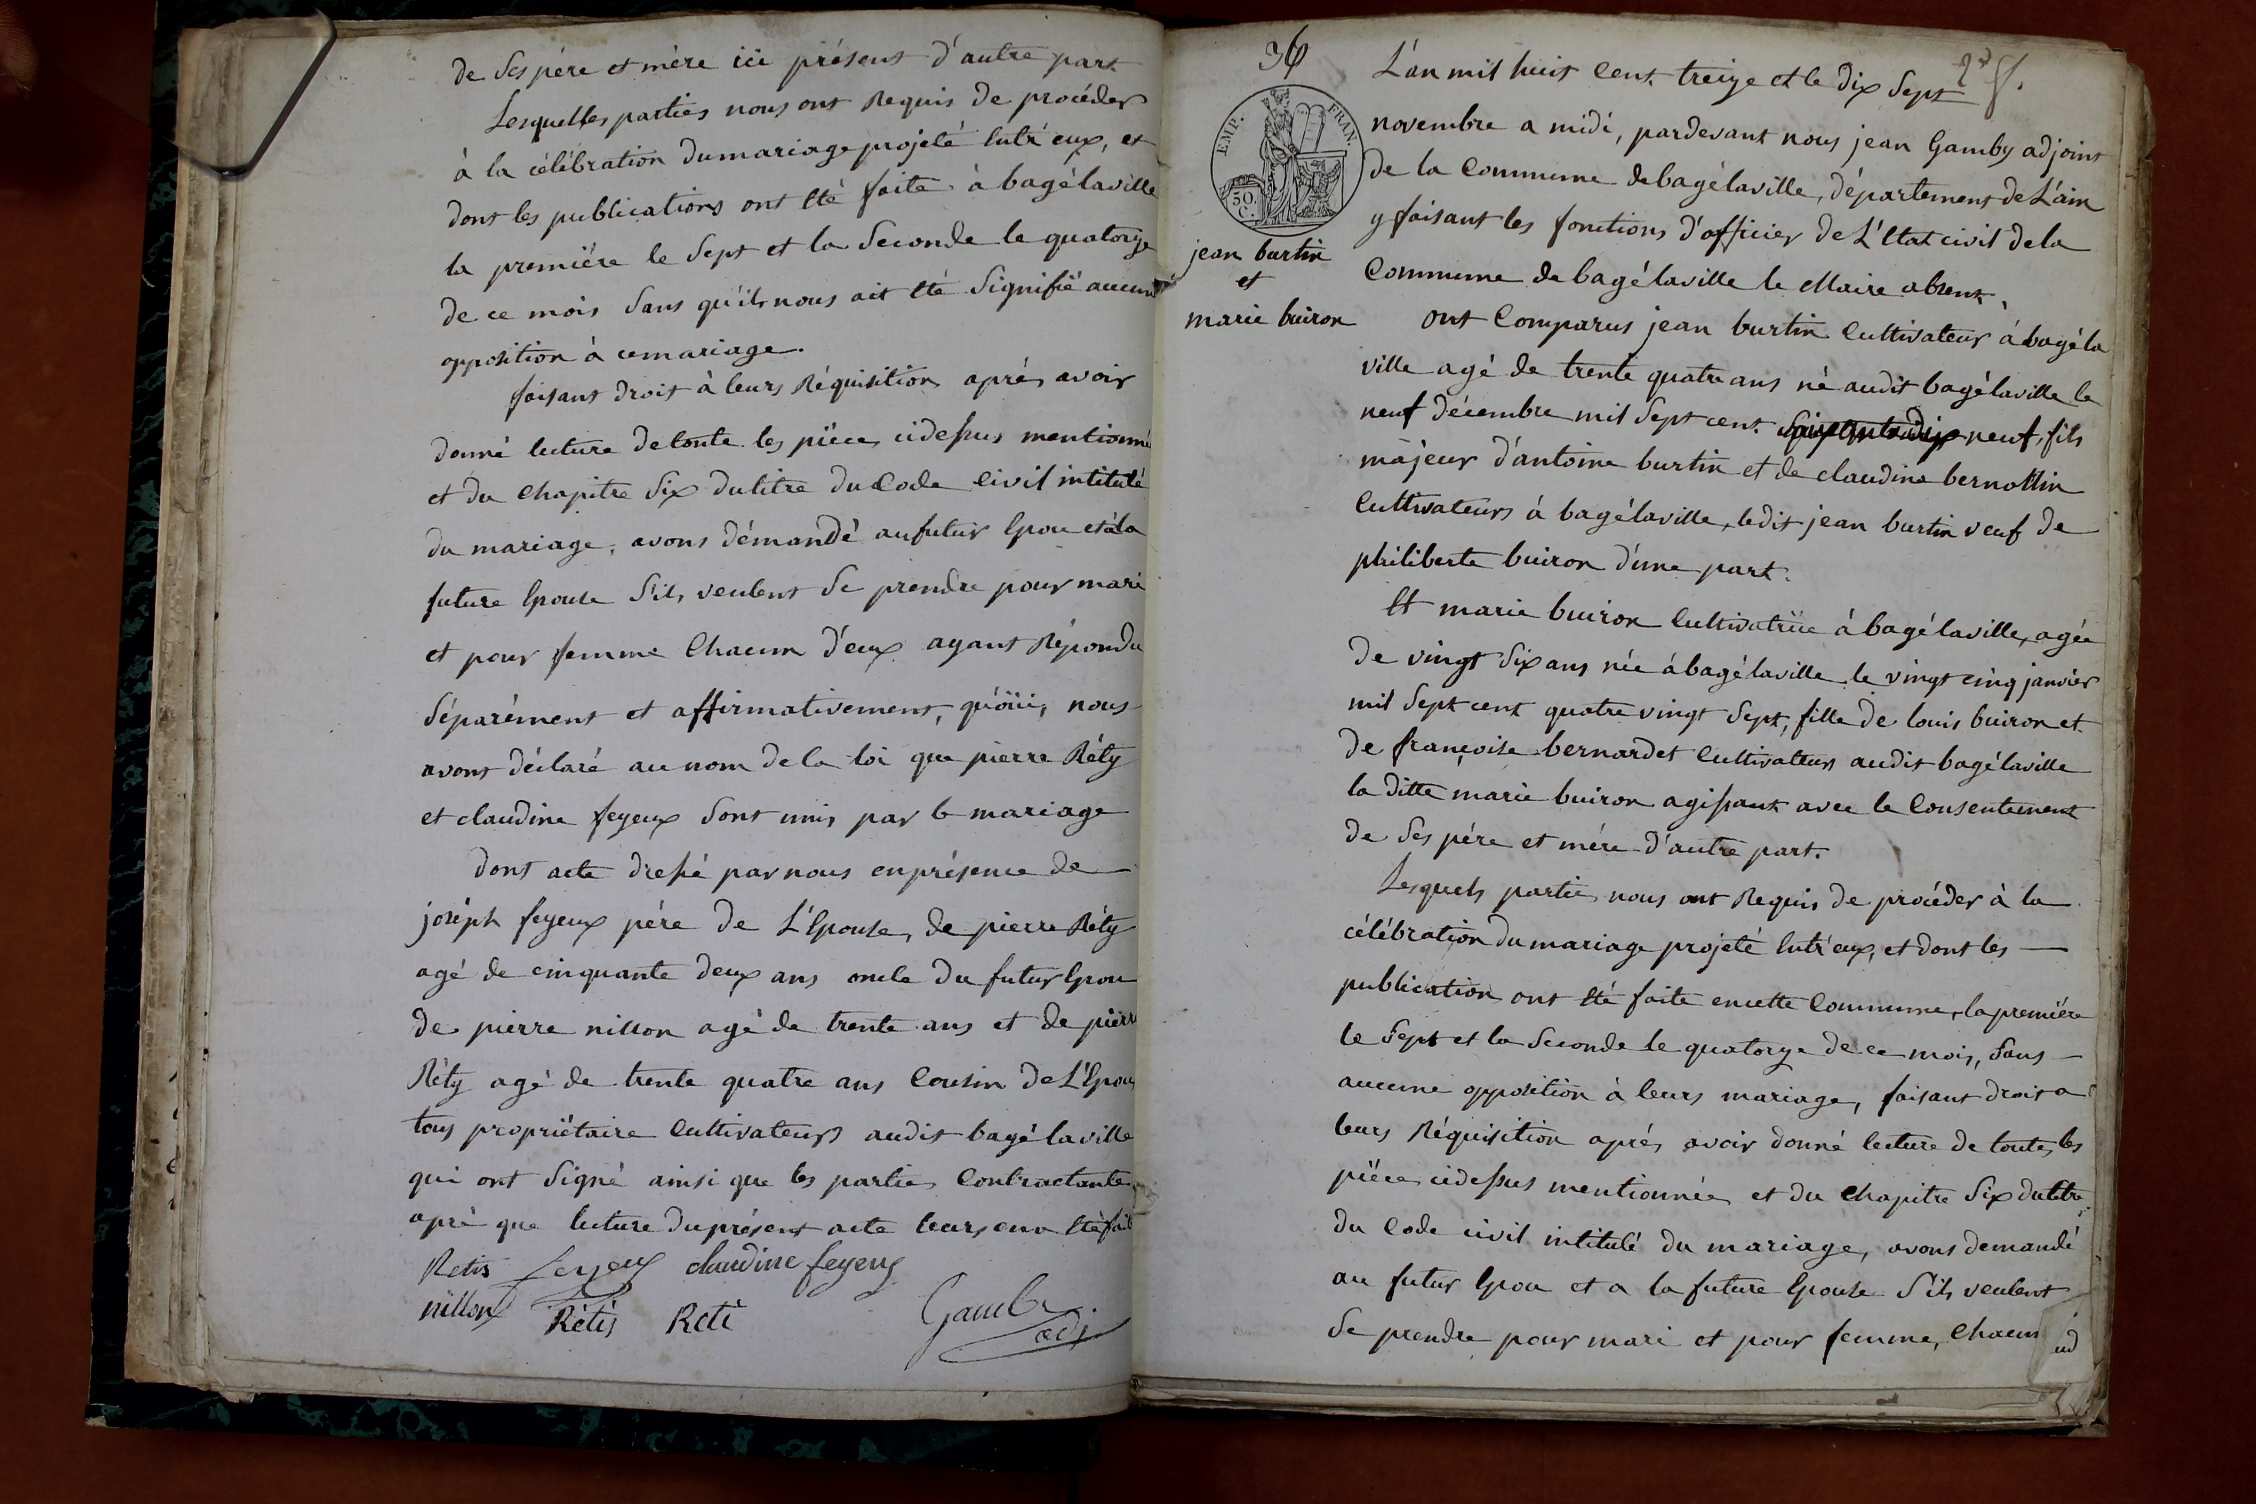 de ses père et mère ici présent d'autre part
Lesquelles parties nous ont Requis de procéder
à la célébration du mariage projeté entr'eux, et
dont les publications ont été faite à bagélaville
la première le sept et la seconde le quatorze
de ce mois sans qu'ils nous ait été signifié aucune
opposition à ce mariage.
faisant droit à leurs Réquisition aprés avoir
donné lecture de toute les pièce cidessus mentionné
et du chapitre six du titre du Code Civil intitulé
du mariage, avons démandé au futur Epou et à la
future Epouse s'ils veulent se prendre pour mari
et pour femme Chacun d'eux ayant Répondu
séparément et affirmativement, qu'öüi, nous
avons déclaré au nom de la loi que pierre Réty
et claudine feyeux sont unis par le mariage
dont acte dressé par nous en présence de
joséph feyeux pére de L'Epouse, de pierre Réty
agé de cinquante deux ans oncle du futur Epou
de pierre nillon agé de trente ans et de pierre
Réty agé de trente quatre ans Cousin de L'Epoux
tous propriétaire Cultivateurs audit bagélaville
qui ont signé ainsi que les parties Contractante
aprè que lecture du présent acte leurs en a été fait
Retis feyeux claudine feyeux
nillon Rétis Reti Gamby adj
36
L'an mil huit Cent treize et le dix sept
EMP. FRAN.
50. C.
novembre a midi, pardevant nous jean Gamby adjoint
de la Commune de bagélaville, département de L'ain
y faisant les fonctions d'officier de L'Etat civil de la
Commune de bagélaville le Maire absent,
jean burtin
et
marie buiron
ont Comparus jean burtin Cultivateur á bagéla
ville agé de trente quatre ans né audit bagélaville le
neuf décembre mil sept cent soixante dix neuf, fils
májeur d'antoine burtin et de claudine bernollin
Cultivateurs á bagélaville, ledit jean burtin veuf de
philiberte buiron d'une part.
Et marie buiron Cultivatrice à bagélaville, agée
de vingt six ans née ábagélaville le vingt cinq janvier
mil sept cent quatre vingt sept, fille de louis buiron et
de françoise bernardet Cultivateurs audit bagélaville
la ditte marie buiron agissant avec le Consentement
de ses pére et mére d'autre part.
Lesquels partie nous ont Requis de procéder à la
célébration du mariage projeté entr'eux, et dont les
publication ont été faite en cette Commune, la première
le sept et la seconde le quatorze de ce mois, sans
aucune opposition à leurs mariage, faisant droit a
leurs Réquisition aprés avoir donné lecture de toutes les
pièce cidessus mentionnée et du Chapitre six du titre
du Code civil intitulé du mariage, avons demandé
au futur Epou et a la future Epouse s'ils veulent
se prendre pour mari et pour femme, Chacun